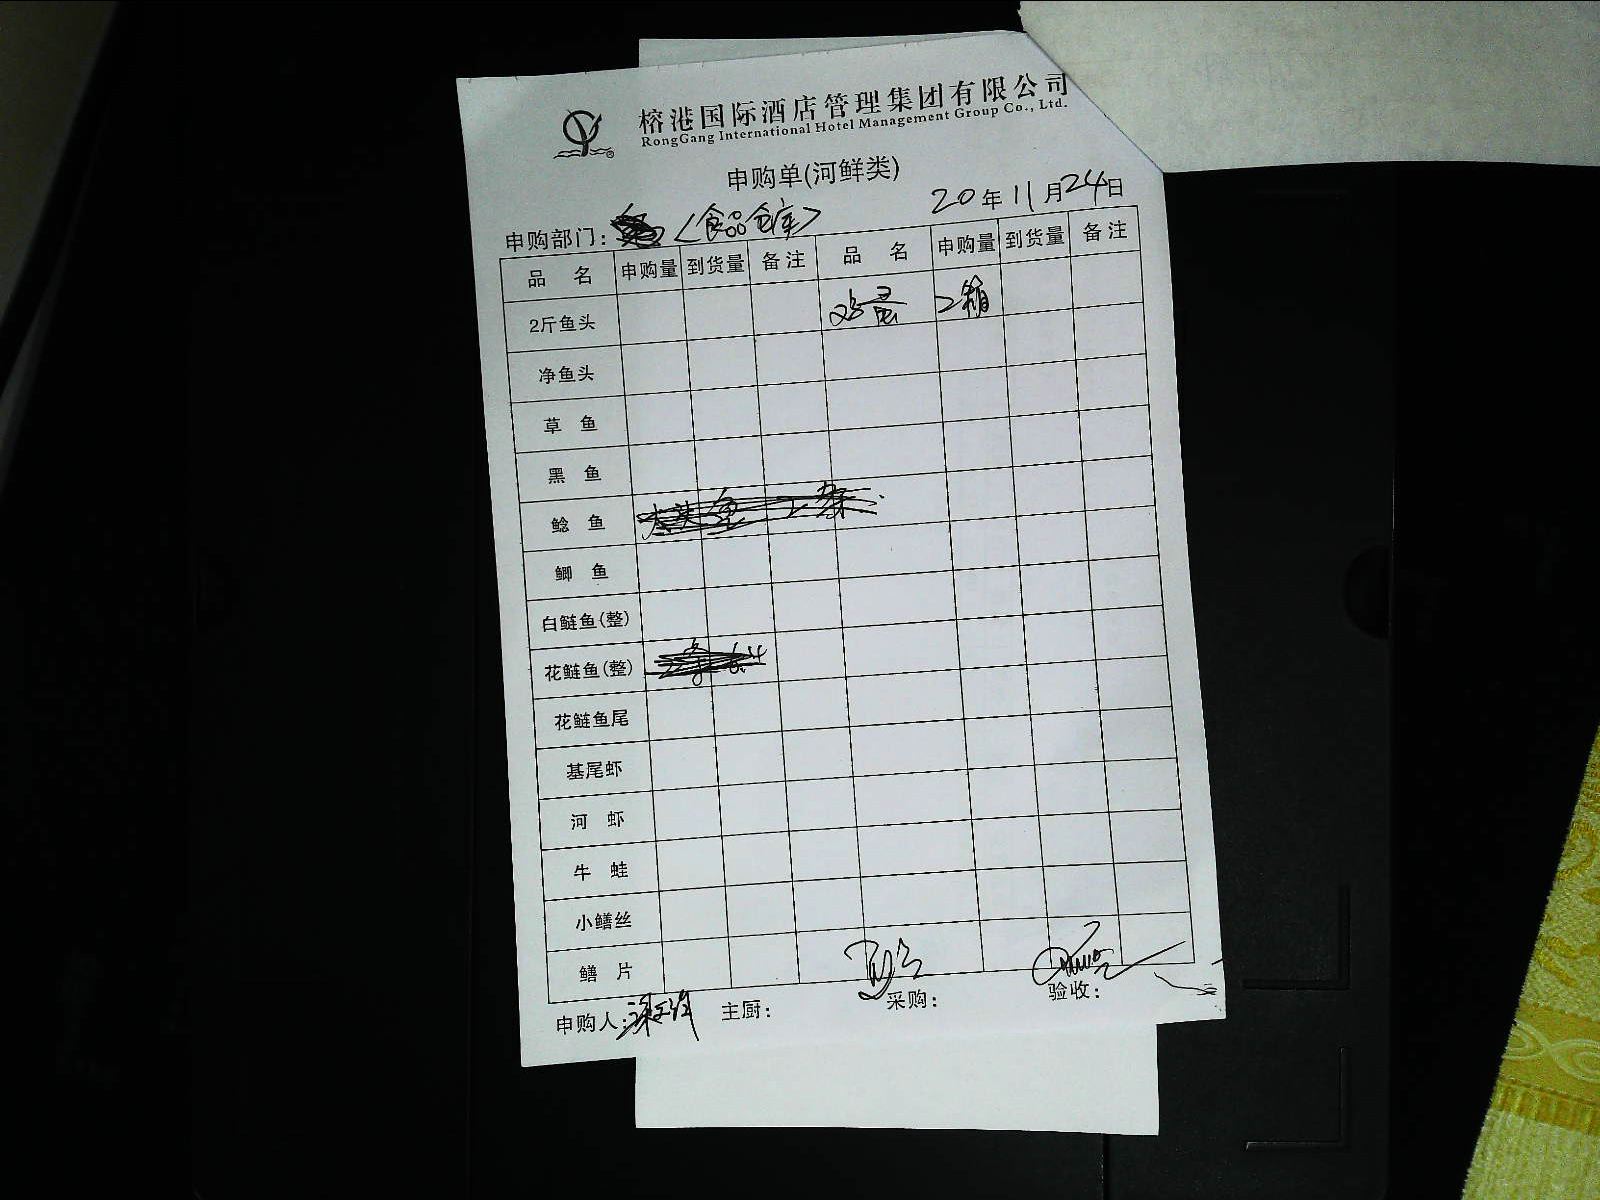 榕港国际酒店管理集团有限公司
RongGang International Hotel Management Group Co., Ltd.
申购单(河鲜类)
20年11月24日
申购部门: <食品仓库>
品 名 申购量 到货量 备注 品 名 申购量 到货量 备注
2斤鱼头 鸡蛋 2箱
净鱼头
草 鱼
黑 鱼
鲶 鱼
鲫 鱼
白鲢鱼(整)
花鲢鱼(整)
花鲢鱼尾
基尾虾
河 虾
牛 蛙
小鳝丝
鳝 片
申购人: 主厨: 采购: 验收: